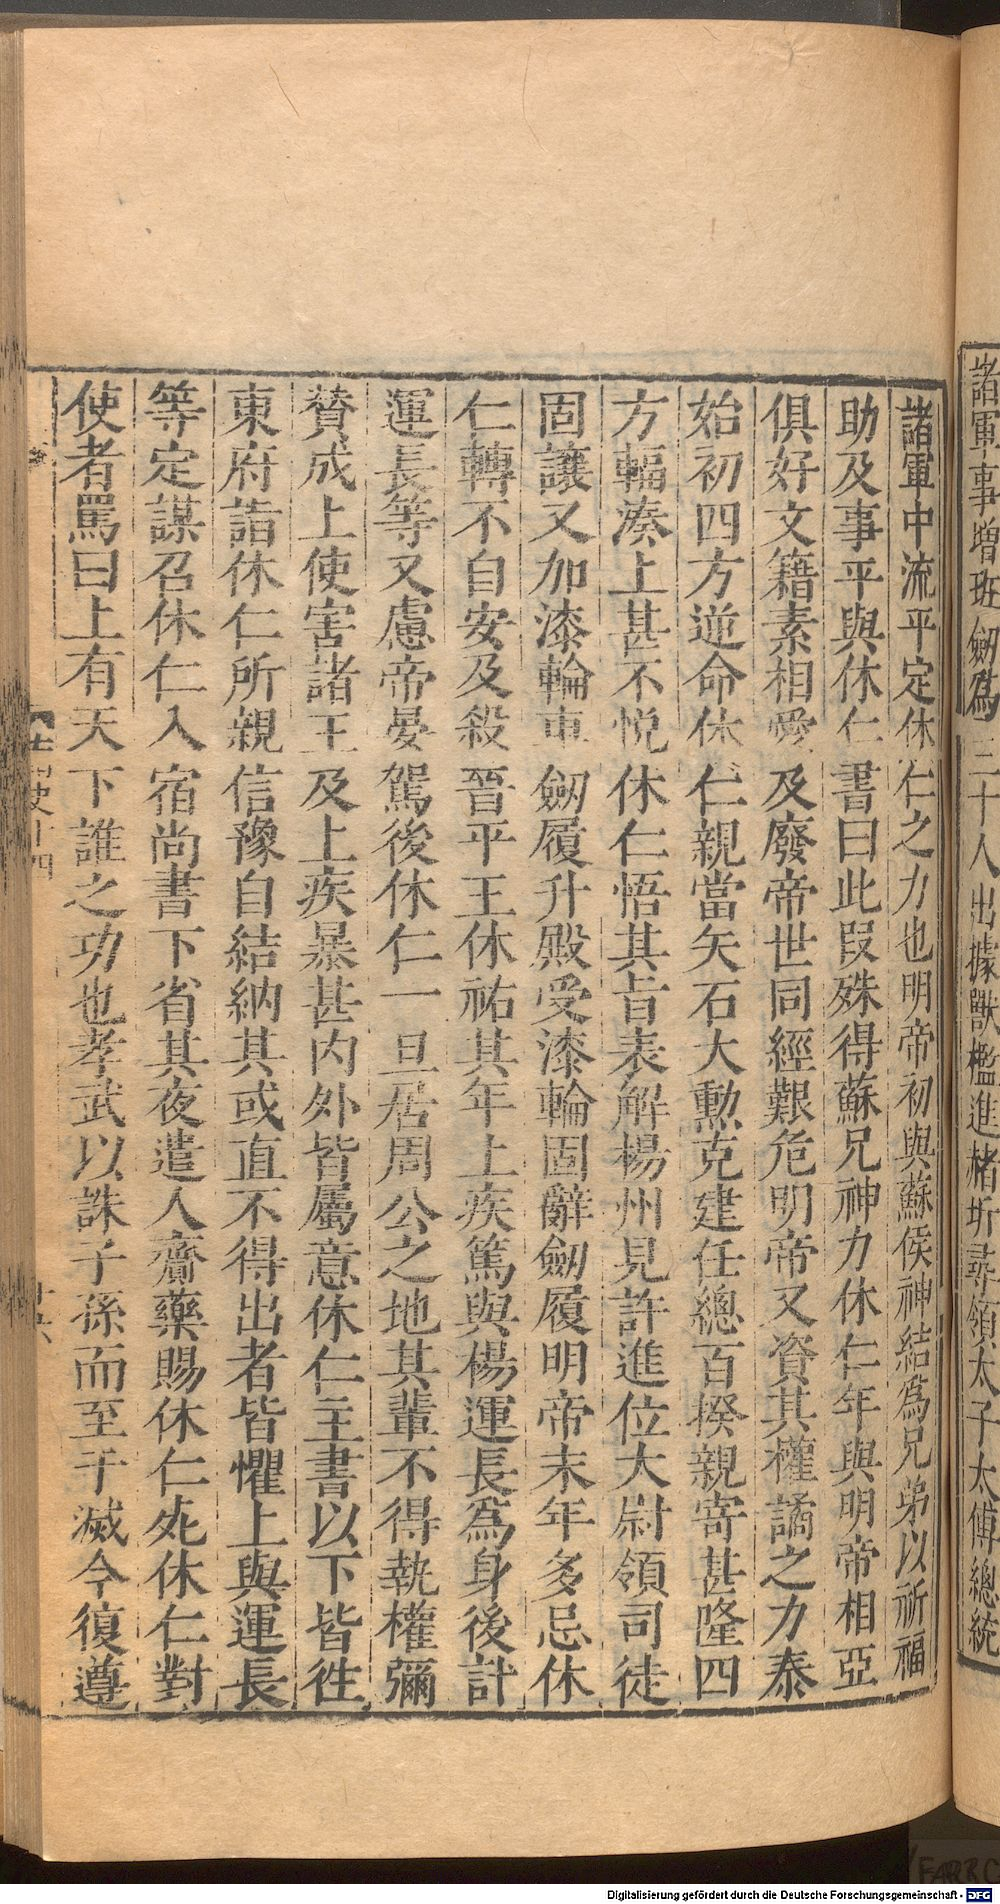 諸軍事增班劒爲三十人出據獸檻進赭圻尋領太子太傅總統
諸軍中流平定休仁之力也明帝初與蘇侯神結爲兄弟以祈福
助及事平與休仁書曰此段殊得蘇兄神力休仁年與明帝相亞
俱好文籍素相愛及廢帝世同經艱危明帝又資其權譎之力泰
始初四方逆命休仁親當矢石大勲克建任總百揆親寄甚隆四
方輻湊上甚不悅休仁悟其旨表解楊州見許進位大尉領司徒
固讓又加漆輪車劒履升殿受漆輪固辭劒履明帝末年多忌休
仁轉不自安及殺晉平王休祐其年上疾篤與楊運長爲身後計
運長等又慮帝晏駕後休仁一旦居周公之地其輩不得執權彌
賛成上使害諸王及上疾暴甚内外皆屬意休仁主書以下皆徃
東府詣休仁所親信豫自結納其或直不得出者皆懼上與運長
等定謀召休仁入宿尚書下省其夜遣人齎藥賜休仁死休仁對
使者罵曰上有天下誰之功也孝武以誅子孫而至于滅今復遵
Digitalisierung gefördert durch die Deutsche Forschungsgemeinschaft - DFG